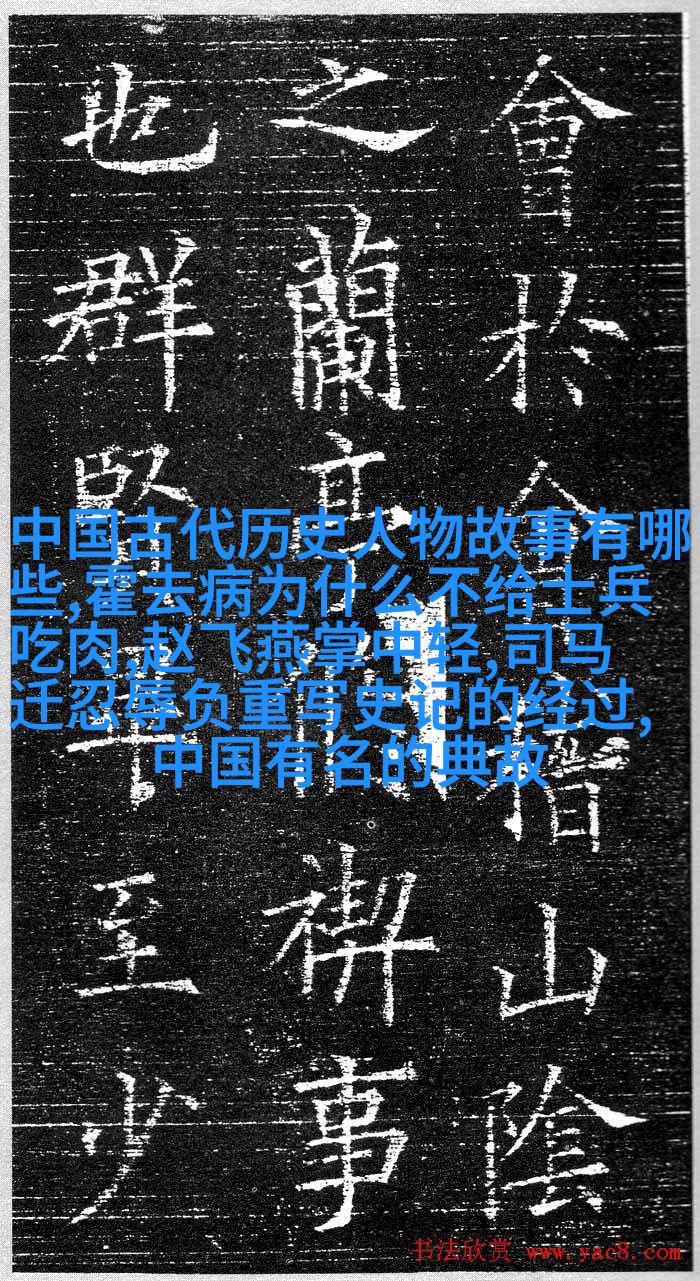 會於會稽山陰
之蘭亭脩禊事
也群賢畢至少
中国古代历史人物故事有哪
些,霍去病为什么不给士兵
吃肉,赵飞燕掌中轻,司马
迁忍辱负重写史记的经过,
中国有名的典故
书法欣赏 www.yac8.com